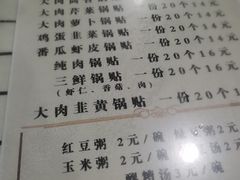 大肉芹菜锅贴 一份20个14元
大肉萝卜锅贴 一份20个14元
鸡蛋韭菜锅贴 一份20个14元
番瓜虾皮锅贴 一份20个14元
纯肉锅贴 一份20个16元
三鲜锅贴 一份20个16元
(虾仁、香菇、肉)
大肉韭黄锅贴 一份20个1
红豆粥 2元/碗
玉米粥 2元/碗
汤 3元/